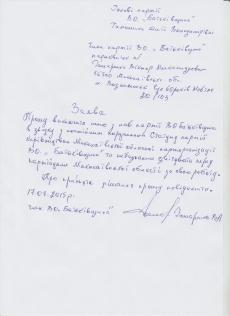 Голові партії
ВО „Батьківщина"
Тимошенко Юлії Володимирівні
Член партії В.О. „Батьківщина"
Миколаївська обл.
м. Вознесенськ
20/103
Заява
Прошу виключити мене з лав партії ВО Батьківщина
в зв'язку з постійним порушенням Статуту партії
керівництвом Миколаївської обласної парторганізації
ВО „Батьківщина" та небажанням звітувати перед
партійцями Миколаївської області за свою роботу.
Про прийняте рішення прошу повідомити.
17.07.2015р.
член ВО „Батьківщина"